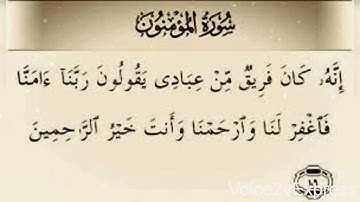 سُورَةُ المُؤْمِنُونَ
إِنَّهُۥ كَانَ فَرِيقٌ مِّنْ عِبَادِى يَقُولُونَ رَبَّنَآ ءَامَنَّا
فَٱغْفِرْ لَنَا وَٱرْحَمْنَا وَأَنتَ خَيْرُ ٱلرَّٰحِمِينَ
Voice2vExpress